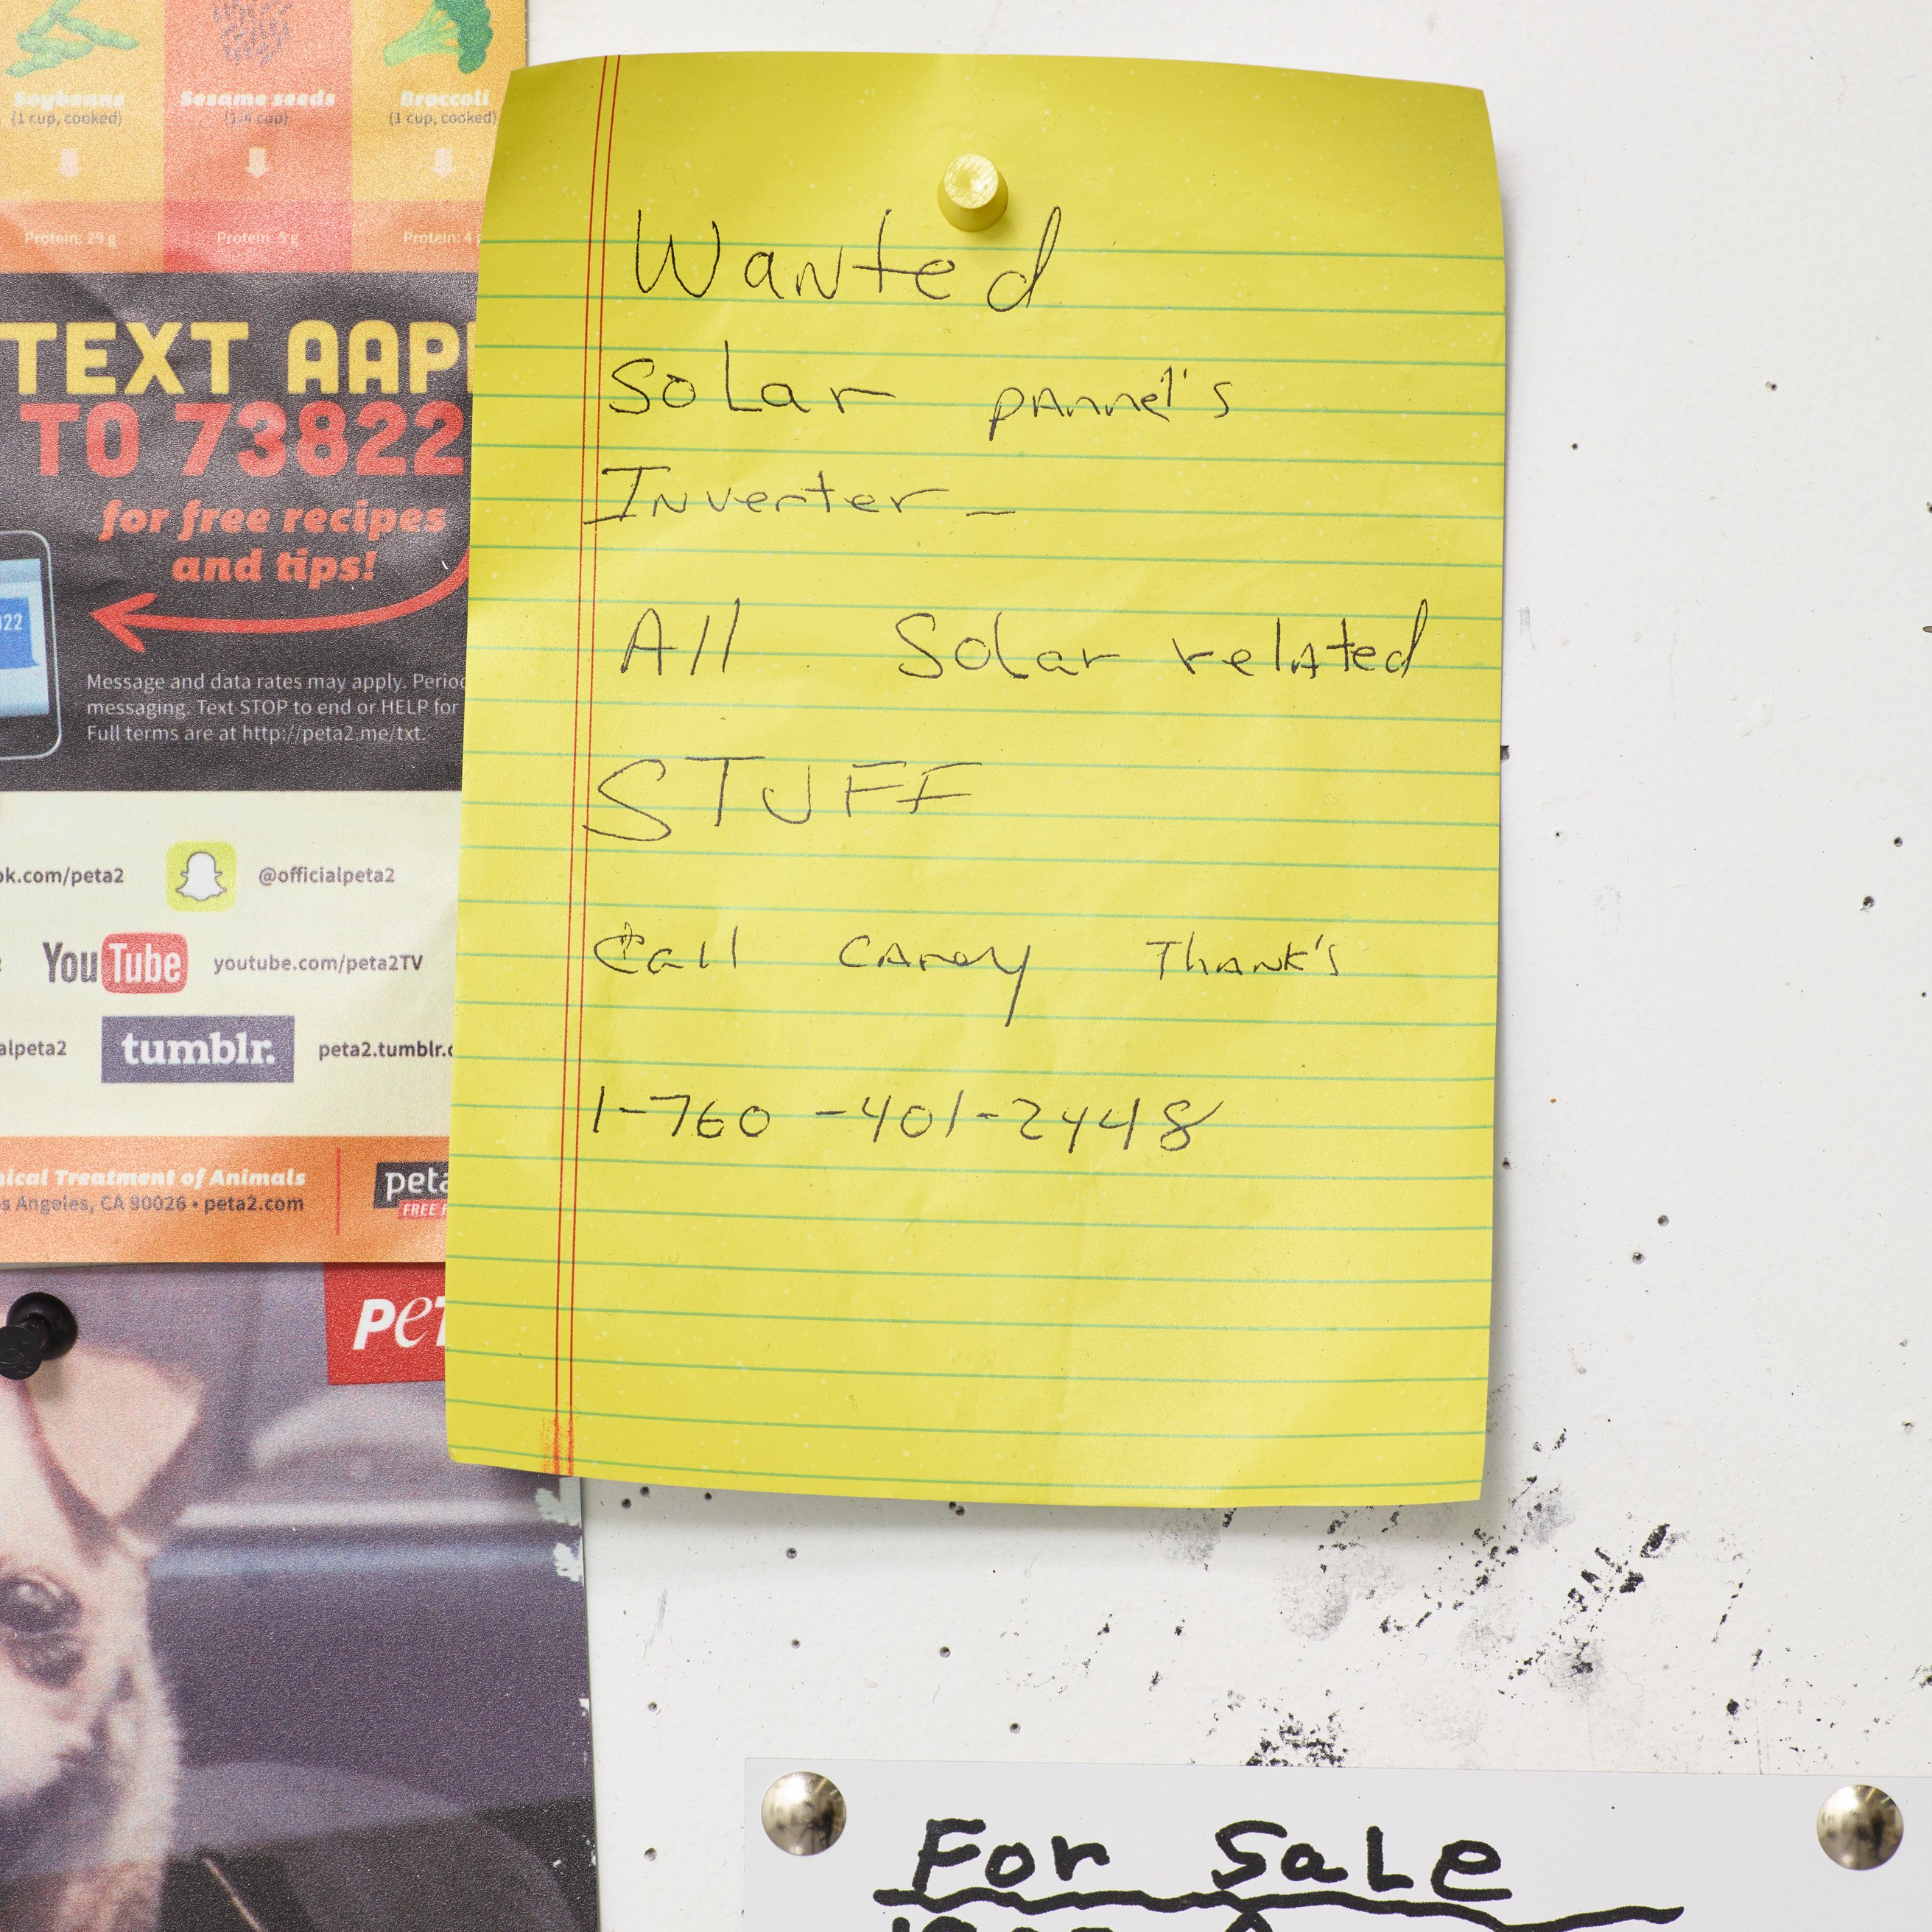 Soybeans
(1 cup, cooked)
Protein: 29 g
Sesame seeds
(1/4 cup)
Protein: 5 g
Broccoli
(1 cup, cooked)
Protein: 4
TEXT AAPI
TO 73822
for free recipes
and tips!
Message and data rates may apply. Perio
messaging. Text STOP to end or HELP for
Full terms are at http://peta2.me/txt.
ok.com/peta2
@officialpeta2
YouTube youtube.com/peta2TV
alpeta2
tumblr. peta2.tumblr.c
nical Treatment of Animals
s Angeles, CA 90026 • peta2.com
peta
FREE
PeT
Wanted
SoLar pAnnel's
INverter –
All Solar relAted
STUFF
Call CAndy ThANk's
1-760 -401-2448
For SaLe